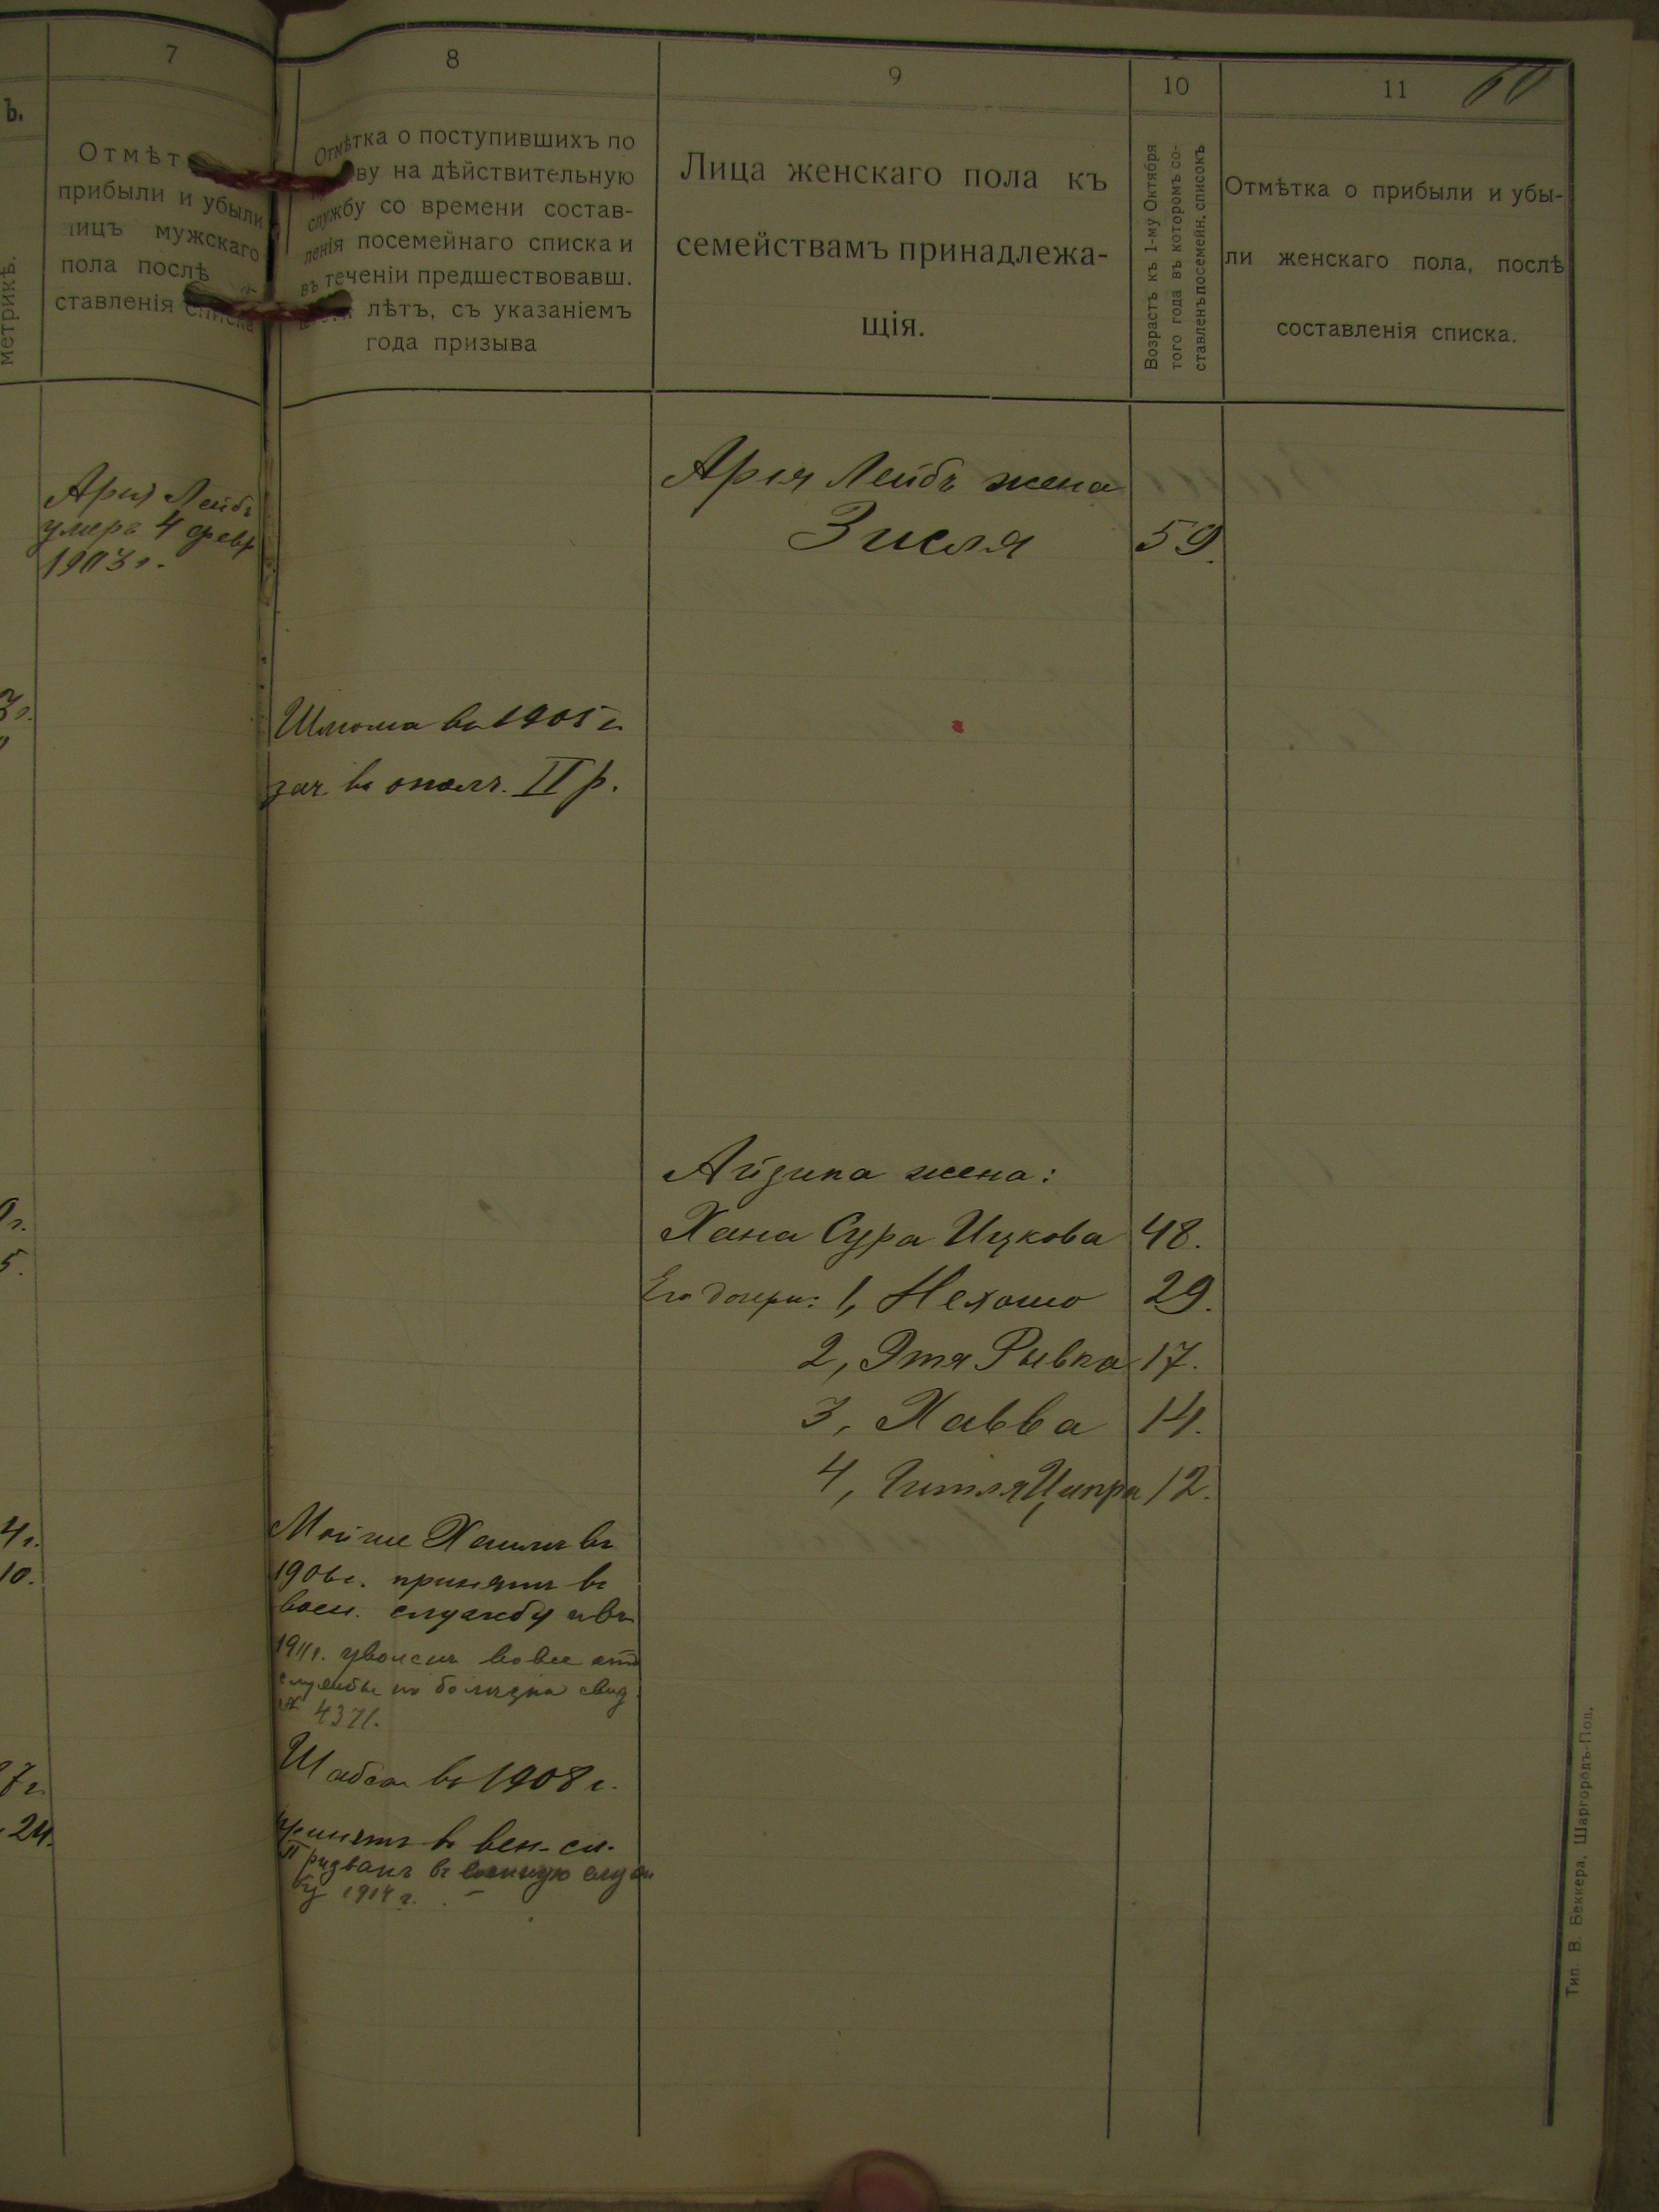 7
Отмѣт
прибыли и убыли
лицъ мужскаго
пола послѣ
ставленія списка
ъ.
метрикѣ.
8
Отмѣтка о поступившихъ по
ву на дѣйствительную
службу со времени состав-
ленія посемейнаго списка и
въ теченіи предшествовавш.
лѣтъ, съ указаніемъ
года призыва
9
Лица женскаго пола къ
семействамъ принадлежа-
щія.
10
Возрастъ къ 1-му Октября
того года въ которомъ со-
ставленъ посемейн. списокъ
11
60
Отмѣтка о прибыли и убы-
ли женскаго пола, послѣ
составленія списка.
Арія Лейбъ
умеръ 4 февр
1903 г.
Арія Лейбъ жена
Зисля 59.
Шлома въ 1905 г.
зач. въ ополч. II р.
Айзика жена:
Хана Сура Ицкова 48.
Его дочери: 1, Нехомо 29.
2, Этя Рывка 17.
3, Хавва 14.
4, Гитля Ципра 12.
Мойше Хаимъ въ
1906 г. принятъ въ
воен. службу и въ
1911 г. уволенъ вовсе отъ
службы по болѣзни свид
№ 4371.
Шабса въ 1908 г.
принятъ въ вен. сл.
Призванъ въ военную служ
бу 1914 г.
4 г.
10.
7 г.
24.
5.
Тип. В. Беккера, Шаргородъ-Под.